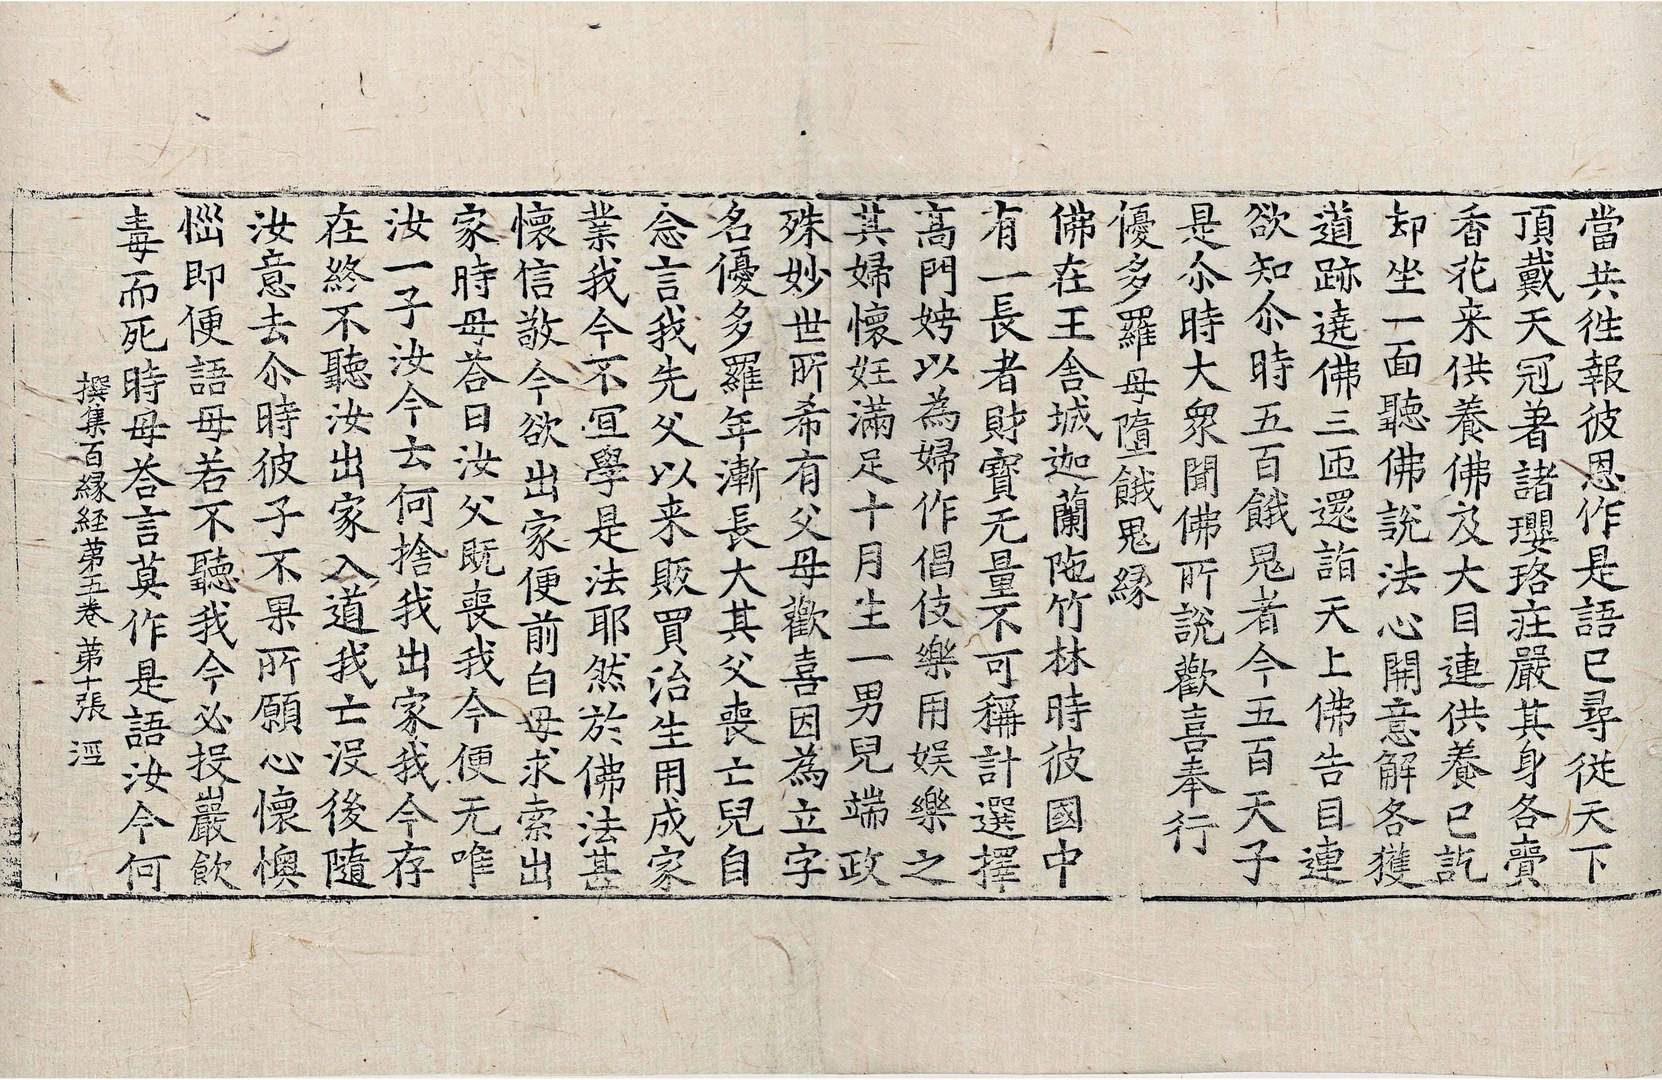 當共徃報彼恩作是語已尋從天下
頂戴天冠著諸瓔珞庄嚴其身各賷
香花来供養佛及大目連供養已訖
却坐一面聽佛說法心開意解各獲
道跡遶佛三匝還詣天上佛告目連
欲知尒時五百餓鬼者今五百天子
是尒時大衆聞佛所說歡喜奉行
優多羅母墮餓鬼縁
佛在王舍城迦蘭陁竹林時彼國中
有一長者財寶无量不可稱計選擇
高門娉以為婦作倡伎樂用娱樂之
其婦懷妊滿足十月生一男兒端政
殊妙世所希有父母歡喜因為立字
名優多羅年漸長大其父喪亡兒自
念言我先父以来販買治生用成家
業我今不宜學是法耶然於佛法甚
懷信敬今欲出家便前白母求索出
家時母荅曰汝父旣喪我今便无唯
汝一子汝今云何捨我出家我今存
在終不聽汝出家入道我亡没後隨
汝意去尒時彼子不果所願心懷懊
惱即便語母若不聽我今必投巖飲
毒而死時母荅言莫作是語汝今何
撰集百縁経第五卷 第十張 涇